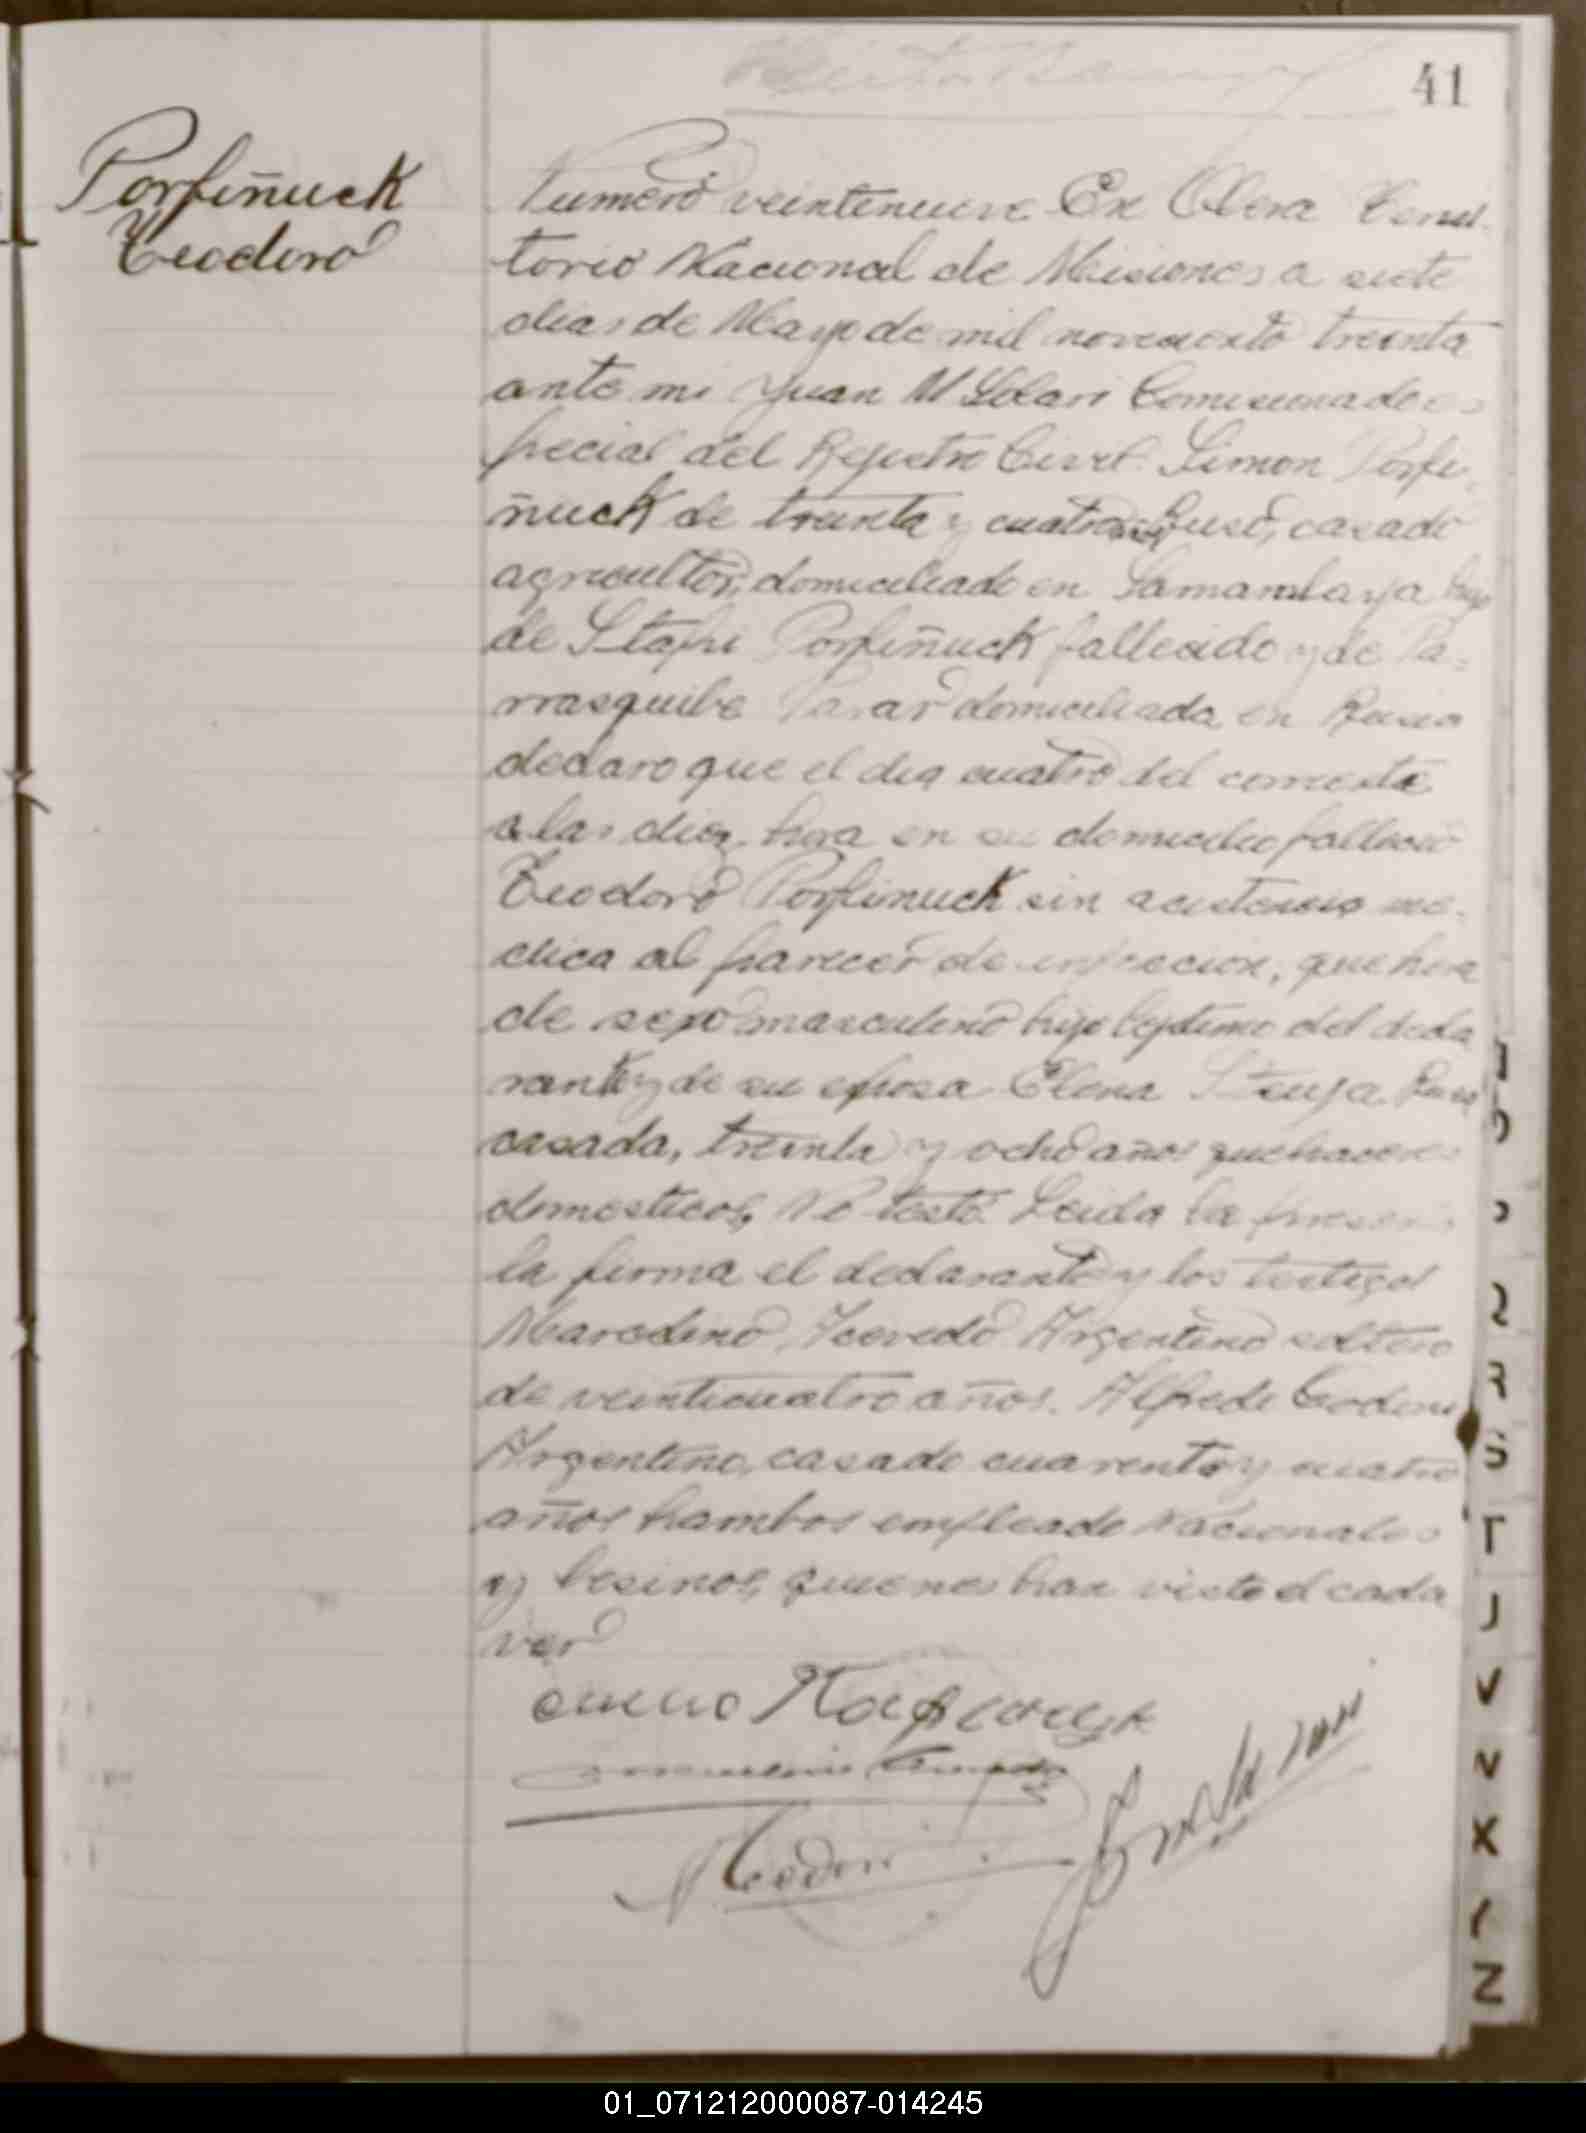 41
Porfiñuck
Teodoro
Numero veintinueve En Obera Terri-
torio Nacional de Misiones a siete
dias de Mayo de mil noveciento treinta
ante mi Juan M Solari Comisionado es
pecial del Registro Civil Simon Porfi-
ñuck de treinta y cuatro Ruso, casado
agricultor, domiciliado en hijo
de Stapi Porfiñuck fallecido y de Pa-
rrasquibe domiciliada en Rusia
declaro que el dia cuatro del corriente
a las diez hora en su domicilio fallecio
Teodoro Porfinuck sin acistencia me-
dica al parecer de infeccion, que hera
de sexo masculino hijo legitimo del decla
rante y de su esposa Elena Rusa
casada, treinta y ocho años quehaceres
domesticos, No testó. Leida la presente
la firma el declarante y los testigos
Marcelino Acevedo Argentino soltero
de veinticuatro años. Alfredo Godoy
Argentino, casado cuarenta y cuatro
años hambos empleado Nacionales
y besinos, quienes han visto el cada
ver
T
V
N
X
Z
01_071212000087-014245